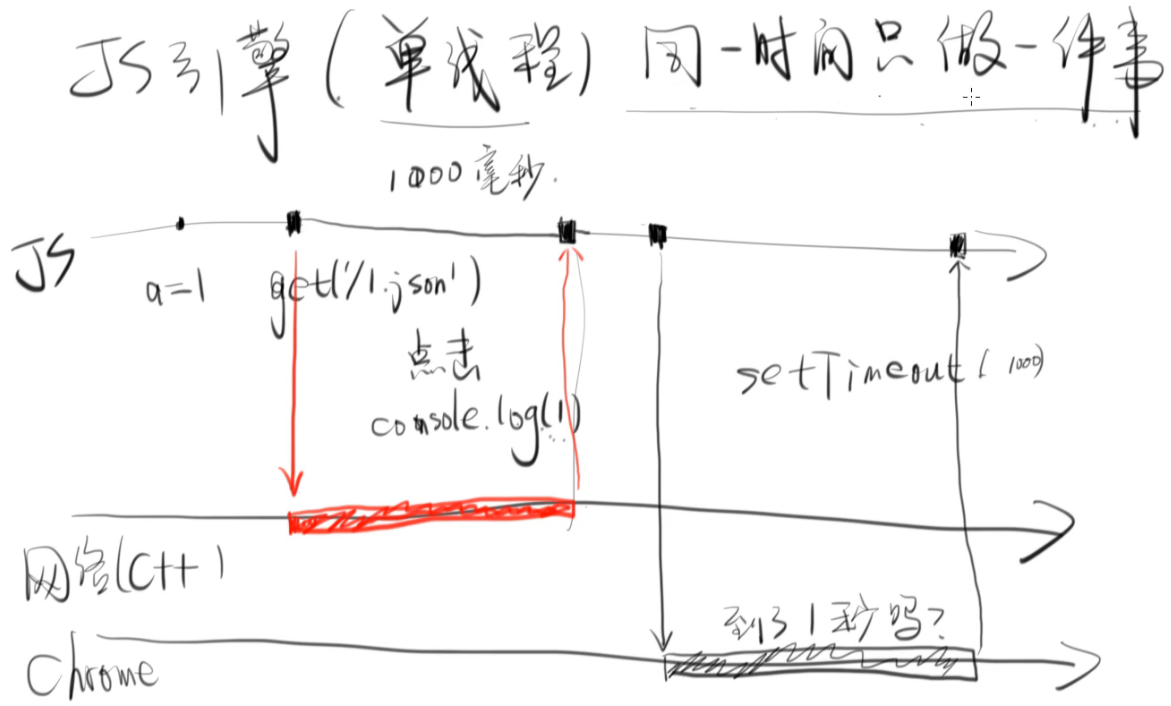 JS引擎(单线程) 同一时间只做一件事
1000毫秒.
JS
a=1
get('/1.json')
点击
console.log(1)
setTimeout( 1000)
网络(C++)
到了1秒吗?
Chrome